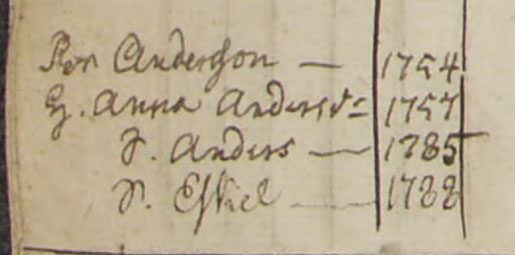 Per Andersson — 1754
H. Anna Andersd= 1757
S. Anders — 1785
S. Eskel — 1788